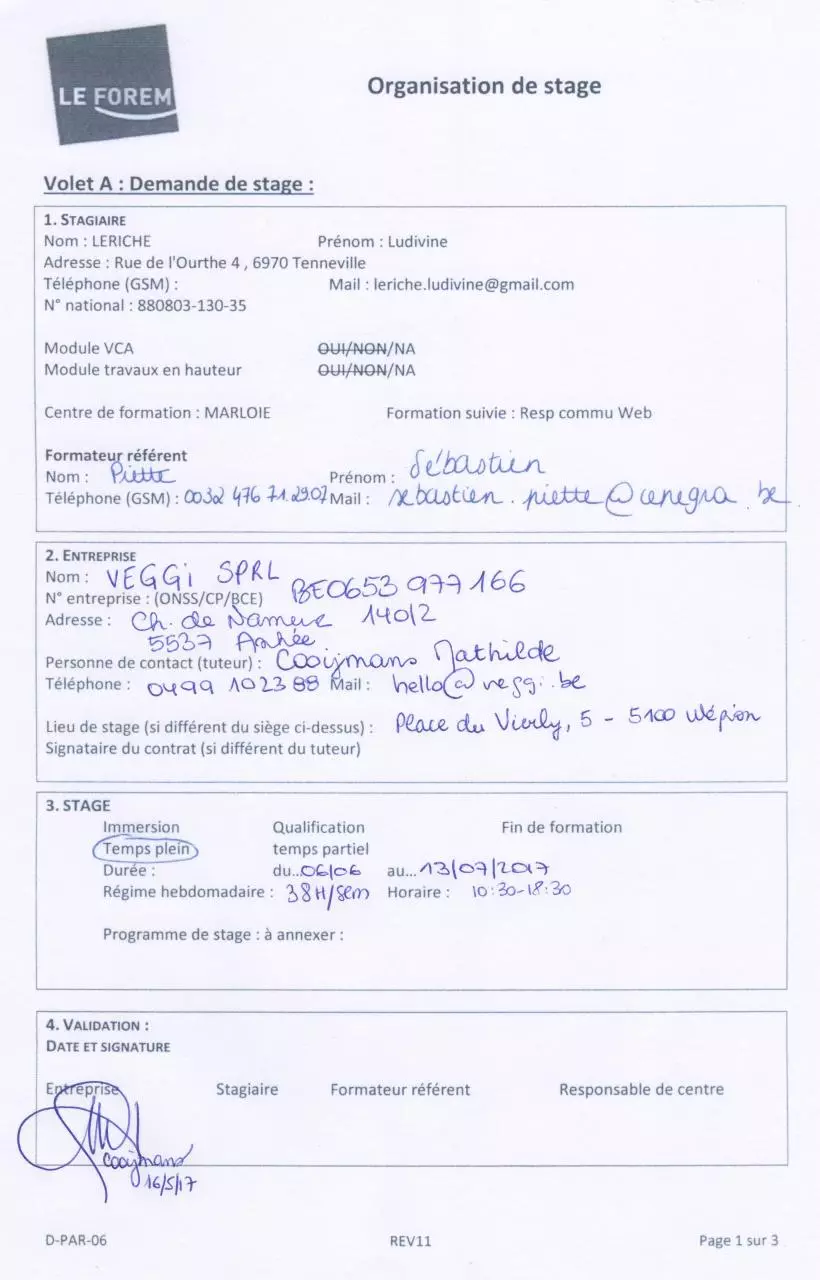 LE FOREM
Organisation de stage
Volet A : Demande de stage :
1. STAGIAIRE
Nom : LERICHE Prénom : Ludivine
Adresse : Rue de l'Ourthe 4 , 6970 Tenneville
Téléphone (GSM) : Mail : leriche.ludivine@gmail.com
N° national : 880803-130-35
Module VCA OUI/NON/NA
Module travaux en hauteur OUI/NON/NA
Centre de formation : MARLOIE Formation suivie : Resp commu Web
Formateur référent
Nom : Piette Prénom : Sébastien
Téléphone (GSM) : 0032 476 71.29.07 Mail : sebastien.piette@cenegra.be
2. ENTREPRISE
Nom : VEGGi SPRL
N° entreprise : (ONSS/CP/BCE) BE0653 977 166
Adresse : Ch. de Namur 140/2
5537 Anhée
Personne de contact (tuteur) : Cooijmans Mathilde
Téléphone : 0499 10 23 88 Mail : hello@veggi.be
Lieu de stage (si différent du siège ci-dessus) : Place du Vierly, 5 - 5100 Wépion
Signataire du contrat (si différent du tuteur)
3. STAGE
Immersion Qualification Fin de formation
Temps plein temps partiel
Durée : du..06/06 au...13/07/2017
Régime hebdomadaire : 38H/sem Horaire : 10:30-18:30
Programme de stage : à annexer :
4. VALIDATION :
DATE ET SIGNATURE
Entreprise Stagiaire Formateur référent Responsable de centre
Cooijmans
16/5/17
D-PAR-06 REV11 Page 1 sur 3